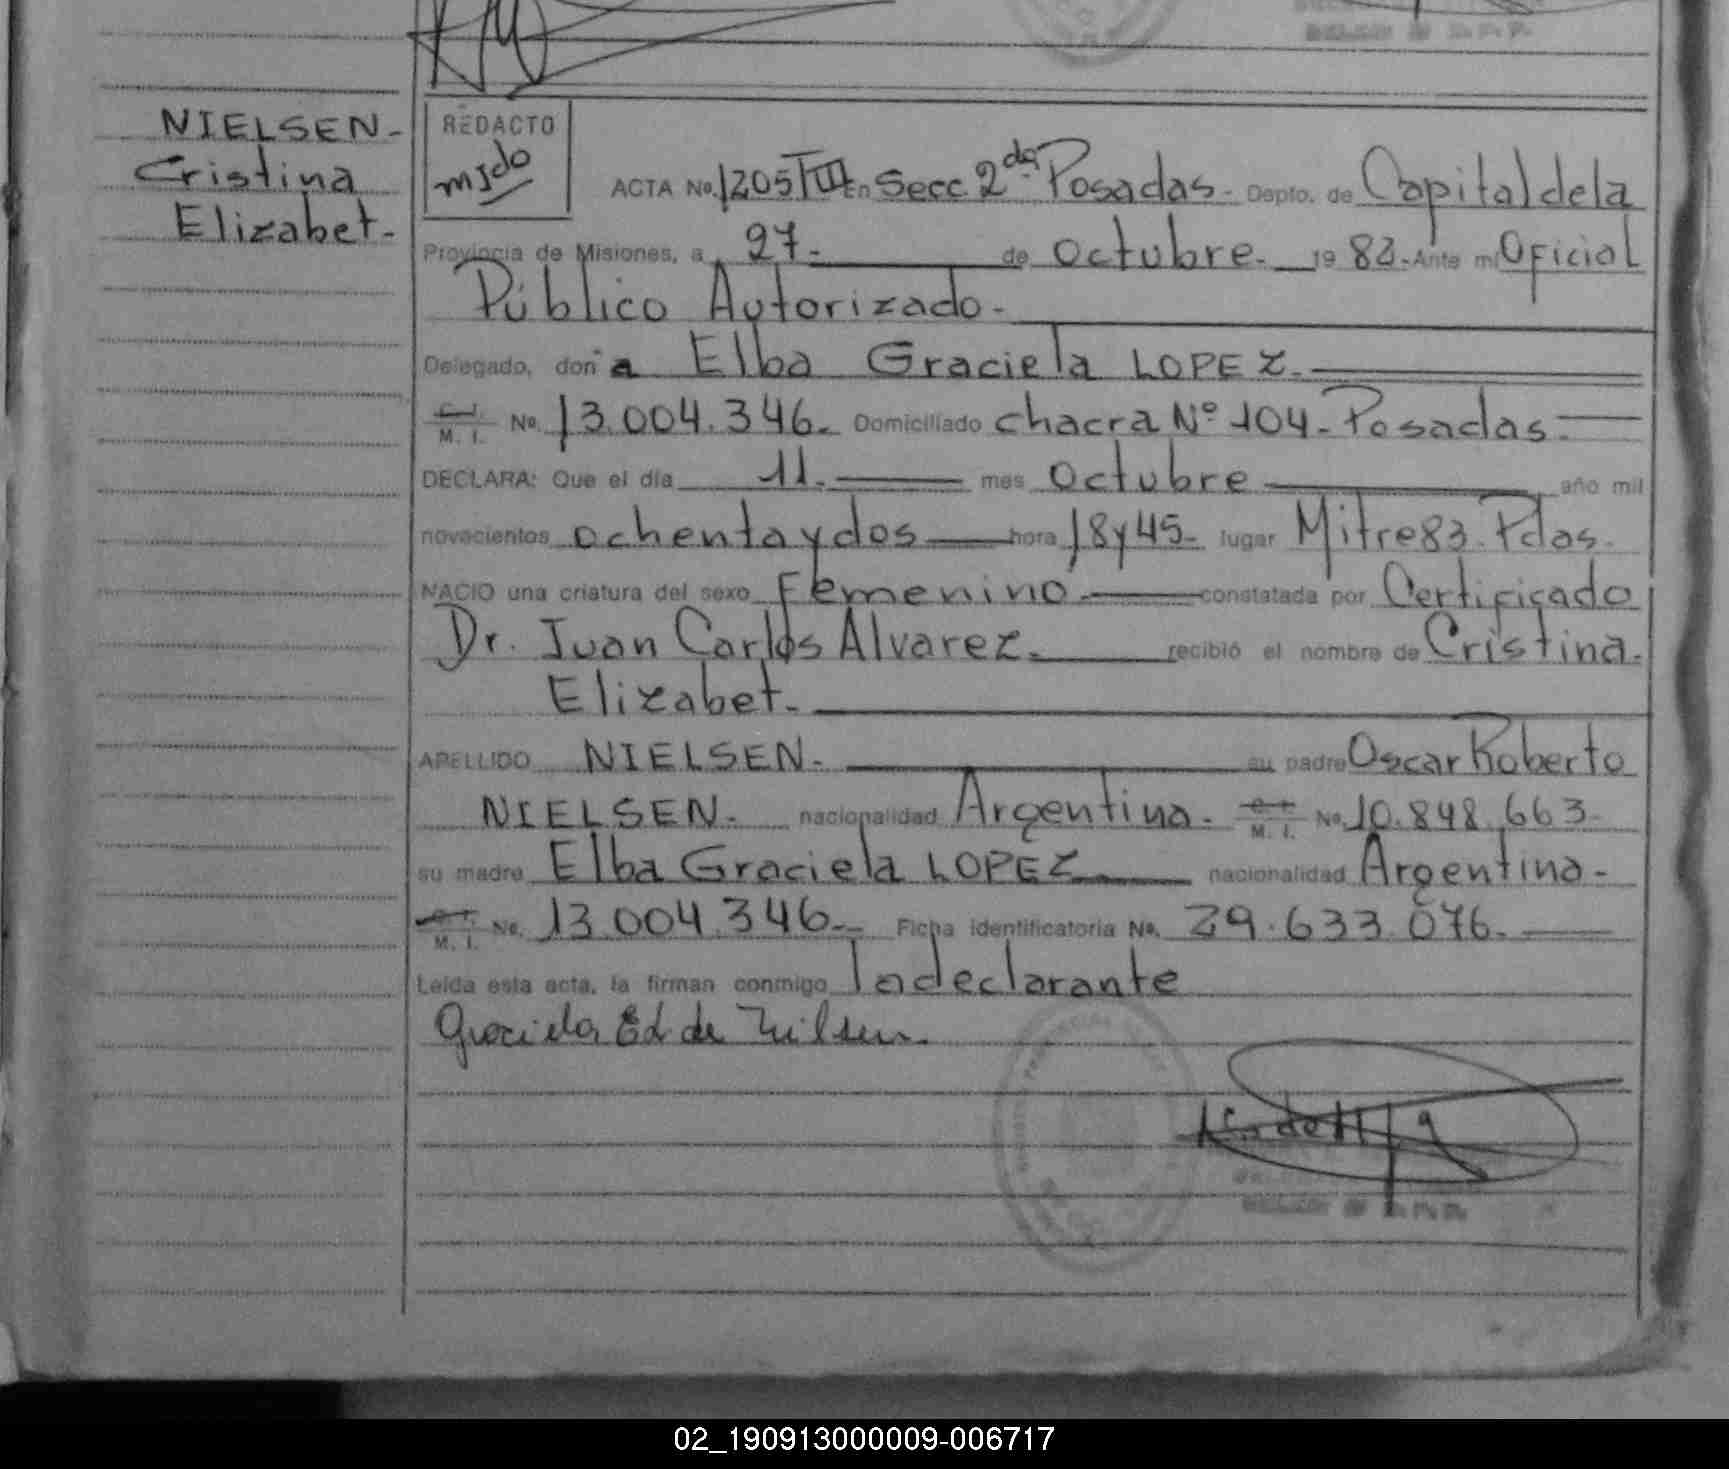 NIELSEN-
Cristina
Elizabet.-
REDACTO
ACTA No. 1205 TºIII En Secc. 2da. Posadas.- Depto. de Capital de la
Provincia de Misiones, a 27.- de Octubre.- 1982.- Ante mi Oficial
Público Autorizado.-
Delegado, don a Elba Graciela LOPEZ.-
C. I.
M. I. No. 13.004.346.- Domiciliado chacra Nº 104.- Posadas.-
DECLARA: Que el día 11.- mes Octubre año mil
novecientos ochenta y dos hora 18 y 45- lugar Mitre 83. Pdas.
NACIO una criatura del sexo Femenino.- constatada por Certificado
Dr. Juan Carlos Alvarez.- recibió el nombre de Cristina.
Elizabet.-
APELLIDO NIELSEN.- su padre Oscar Roberto
NIELSEN.- nacionalidad Argentina.- M. I. No. 10.848.663.-
su madre Elba Graciela LOPEZ nacionalidad Argentina.-
M. I. No. 13.004.346.- Ficha identificatoria No. 29.633.076.-
Leída esta acta, la firman conmigo la declarante
Graciela de
02_190913000009-006717